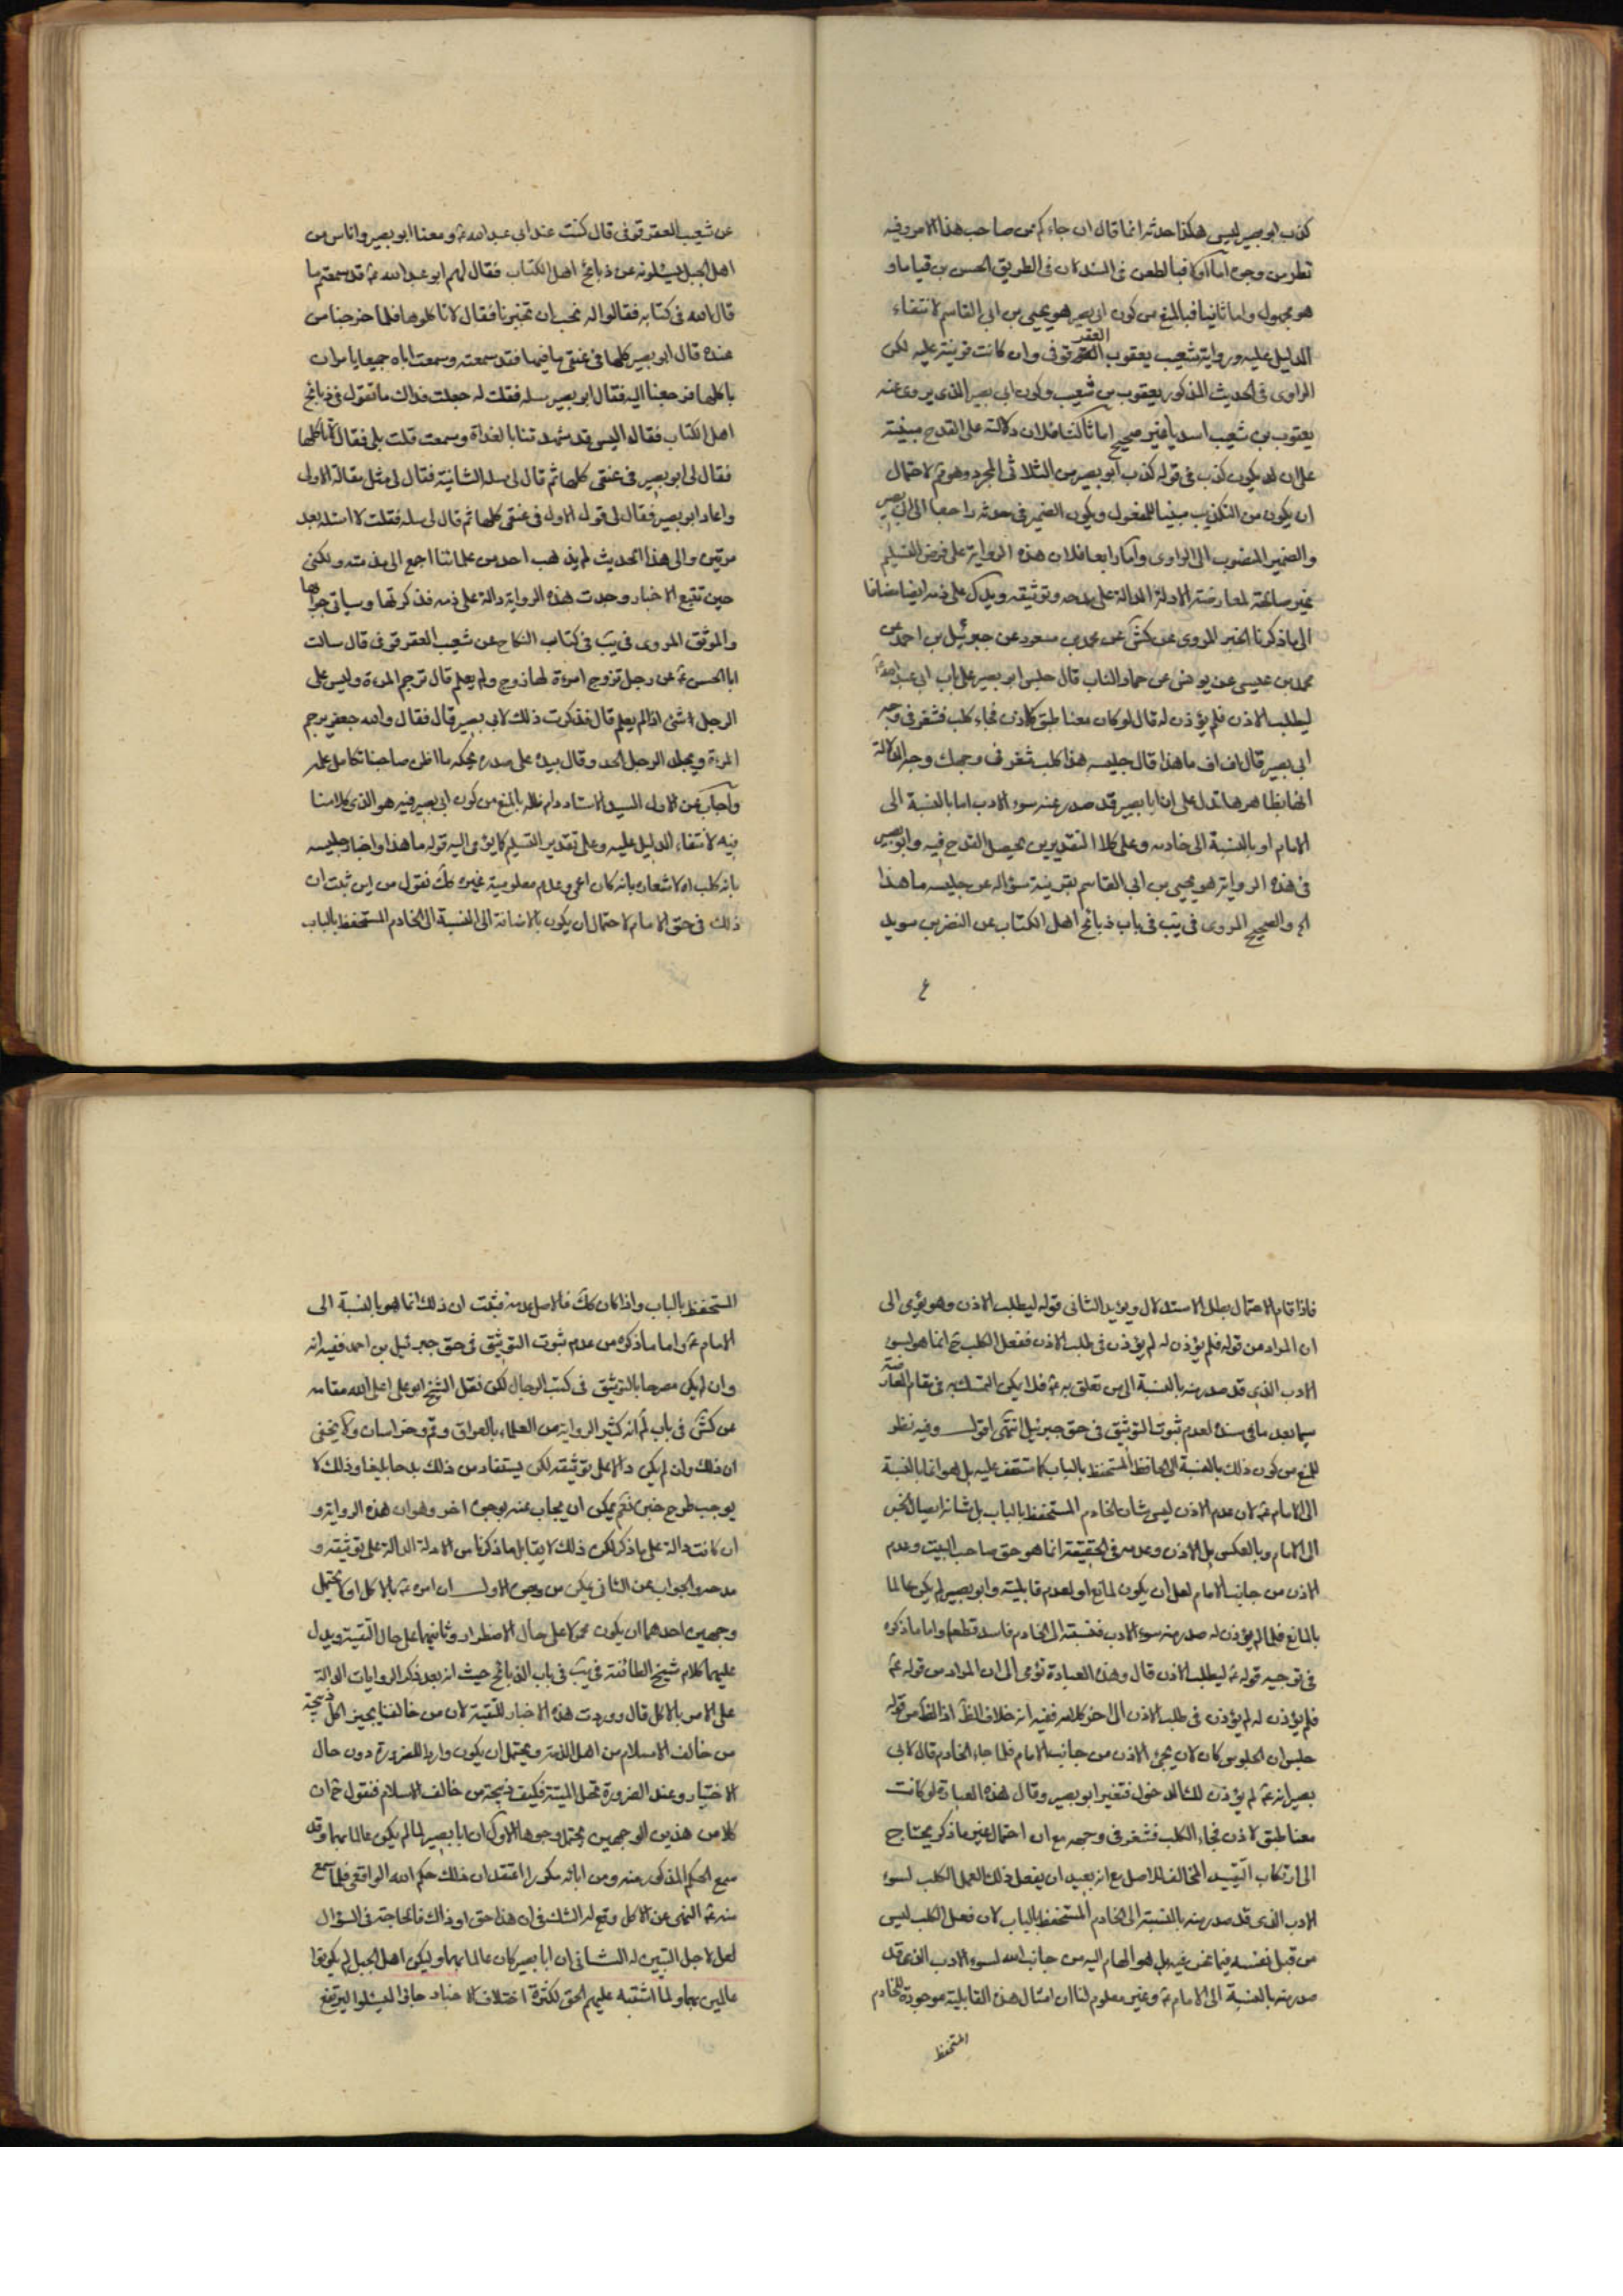 كذب ابو بصير ليس هكذا حدثه انما قال ان جاءكم عن صاحب هذا الامر وفيه
نظر من وجوه اما اولا فبالطعن فى السند لان فى الطريق الحسن بن قياما و
هو مجهول واما ثانيا فبالمنع من كون ابى بصير هو يحيى بن ابى القاسم لانتفاء
الدليل عليه ورواية شعيب يعقوب العقرقوفى وان كانت قرينة عليه لكن
الراوى فى الحديث المذكور يعقوب بن شعيب وكون ابى بصير الذى يروى عنه
يعقوب بن شعيب اسديا غير صحيح اما ثالثا فلان دلالته على القدح مبنية
على ان يكون كذب فى قوله كذب ابو بصير من الثلاثى المجرد وهو مم لاحتمال
ان يكون من التكذيب مبنيا للمفعول ويكون الضمير فى حدثه راجعا الى ابى بصير
والضمير المنصوب الى الراوى واما رابعا فلان هذه الرواية على فرض التسليم
غير صالحة لمعارضة الادلة الدالة على مدحه وتوثيقه ويدل على ذمه ايضا مضافا
الى ما ذكرنا الخبر المروى عن كش عن محمد بن مسعود عن جبرئيل بن احمد عن
محمد بن عيسى عن يونس عن حماد الناب قال جلس ابو بصير على باب ابى عبد الله ع
ليطلب الاذن فلم يؤذن له قال لو كان معنا طبق لاذن فجاء كلب فشغر فى وجه
ابى بصير قال اف اف ما هذا قال جليسه هذا كلب شغر فى وجهك وجه الدلالة
انها بظاهرها تدل على ان ابا بصير قد صدر عنه سوء الادب اما بالنسبة الى
الامام او بالنسبة الى خادمه وعلى كلا التقديرين يحصل القدح فيه وابو بصير
فى هذه الرواية هو يحيى بن ابى القاسم بقرينة سؤاله عن جليسه ما هذا
الخ والصحيح المروى فى يب فى باب ذبائح اهل الكتاب عن النضر بن سويد
عن شعيب العقرقوفى قال كنت عند ابى عبد الله ع ومعنا ابو بصير واناس من
اهل الجبل يسئلونه عن ذبائح اهل الكتاب فقال لهم ابو عبد الله ع قد سمعتم ما
قال الله فى كتابه فقالوا له نحب ان تخبرنا فقال لا تاكلوها فلما خرجنا من
عنده قال ابو بصير كلها فى عنقى ما فيها فقد سمعته وسمعت اباه جميعا يامران
باكلها فرجعنا اليه فقال ابو بصير سله فقلت له جعلت فداك ما تقول فى ذبائح
اهل الكتاب فقال اليس قد شهدتنا بالغداة وسمعت قلت بلى فقال لا تاكلها
فقال لى ابو بصير فى عنقى كلها ثم قال لى سله الثانية فقال لى مثل مقالة الاولى
واعاد ابو بصير فقال لى قوله الاول فى عنقى كلها ثم قال لى سله فقلت لا اسئله بعد
مرتين والى هذا الحديث لم يذهب احد من علمائنا اجمع الى مذمته ولكنى
حين تتبع الاخبار وجدت هذه الرواية دالة على ذمه فذكرتها وسياتى جوابها
والموثق المروى فى يب فى كتاب النكاح عن شعيب العقرقوفى قال سالت
ابا الحسن ع عن رجل تزوج امرءة لها زوج ولم يعلم قال ترجم المرءة وليس على
الرجل شئ اذا لم يعلم قال فذكرت ذلك لابى بصير قال فقال والله جعفر يرجم
المرءة ويجلد الرجل الحد وقال بيده على صدره يحكه ما اظن صاحبنا تكامل علمه
واجاب عن الاول السيد الاستاد دام ظله بالمنع من كون ابى بصير فيه هو الذى كلامنا
فيه لانتفاء الدليل عليه وعلى تقدير التسليم كما يؤمى اليه قوله ما هذا واخبار جليسه
بانه كلب اه لاشعاره بانه كان اعمى وعدم معلومية غيره كك نقول من اين ثبت ان
ذلك فى حق الامام لاحتمال ان يكون بالاضافة الى النسبة الى الخادم المستحفظ بالباب
فاذا قام الاحتمال بطل الاستدلال ويؤيد الثانى قوله ليطلب الاذن وهو يؤمى الى
ان المراد من قوله فلم يؤذن له لم يؤذن فى طلب الاذن ففعل الكلب ح انما هو لسوء
الادب الذى قد صدر منه بالنسبة الى من تعلق به ع فلا يمكن التمسك به فى مقام المعارضة
سيما بعد ما فى سنده لعدم ثبوت التوثيق فى حق جبرئيل انتهى اقول وفيه نظر
للمنع من كون ذلك بالنسبة الى الحافظ المستحفظ بالباب كما ستقف عليه بل هو انما بالنسبة
الى الامام ع لان عدم الاذن ليس شان الخادم المستحفظ بالباب بل شانه ايصال الخبر
الى الامام وبالعكس بل الاذن وعدمه فى الحقيقة انما هو حق صاحب البيت وعدم
الاذن من جانب الامام لعل ان يكون لمانع او لعدم قابليته وابو بصير لم يكن عالما
بالمانع فلما لم يؤذن له صدر منه سوء الادب فنسبته الى الخادم فاسد قطعا واما ما ذكره
فى توجيه قوله ع ليطلب الاذن قال وهذه العبارة تؤمى الى ان المراد من قوله ع
فلم يؤذن له لم يؤذن فى طلب الاذن الى اخر كلامه ففيه انه خلاف الظ اذ الظ من قوله
جلس ان الجلوس كان لان يجئ الاذن من جانب الامام فلما جاء الخادم قال لابى
بصير انه ع لم يؤذن لك الدخول فتغير ابو بصير وقال هذه العبارة لو كانت
معنا طبق لاذن فجاء الكلب فشغر فى وجهه مع ان احتمال غير ما ذكر يحتاج
الى ارتكاب التقييد المخالف للاصل مع انه بعيد ان يفعل ذلك العمل الكلب لسوء
الادب الذى قد صدر منه بالنسبة الى الخادم المستحفظ بالباب لان فعل الكلب ليس
من قبل نفسه فيما نحن فيه بل هو الهام اليه من جانب الله لسوء الادب الذى قد
صدر منه بالنسبة الى الامام ع وغير معلوم لنا ان امثال هذه القابلية موجودة للخادم
المستحفظ
المستحفظ بالباب واذا كان كك فالاصل عدمه فثبت ان ذلك انما هو بالنسبة الى
الامام ع واما ما ذكره من عدم ثبوت التوثيق فى حق جبرئيل بن احمد ففيه انه
وان لم يكن مصرحا بالتوثيق فى كتب الرجال لكن نقل الشيخ ابو على اعلى الله مقامه
عن كش فى باب لم انه كثير الرواية عن العلماء بالعراق وقم وخراسان ولا يخفى
ان ذلك وان لم يكن دالا على توثيقه لكن يستفاد من ذلك مدحا بليغا وذلك لا
يوجب طرح خبره نعم يمكن ان يجاب عنه بوجوه اخر وهو ان هذه الرواية و
ان كانت دالة على ما ذكر لكن ذلك لا يقابل ما ذكرنا من الادلة الدالة على توثيقه و
مدحه والجواب عن الثانى يمكن من وجوه الاول ان امره ع بالاكل اولا يحتمل
وجهين احدهما ان يكون محمولا على حال الاضطرار وثانيهما على حال التقية ويدل
عليهما كلام شيخ الطائفة فى يب فى باب الذبائح حيث انه بعد ذكر الروايات الدالة
على الامر بالاكل قال ووردت هذه الاخبار للتقية لان من خالفنا يجيز اكل ذبيحة
من خالف الاسلام من اهل الذمة ويحتمل ان يكون واردا للضرورة دون حال
الاختيار وعند الضرورة تحل الميتة فكيف ذبيحة من خالف الاسلام فنقول ثم ان
كلا من هذين الوجهين يحتمل وجوها الاول ان ابا بصير لما لم يكن عالما بهما وقد
سمع الحكم المذكور منه ومن ابائه مكررا اعتقد ان ذلك حكم الله الواقعى فلما سمع
منه ع النهى عن الاكل وقع له الشك فى ان هذا حق او ذاك فالحاجته فى السؤال
لعل لاجل التبيين له الثانى ان ابا بصير كان عالما بهما ولكن اهل الجبل لم يكونوا
عالمين بهما ولما اشتبه عليهم الحق لكثرة اختلاف الاخبار جاؤا ليسئلوا ليرتفع